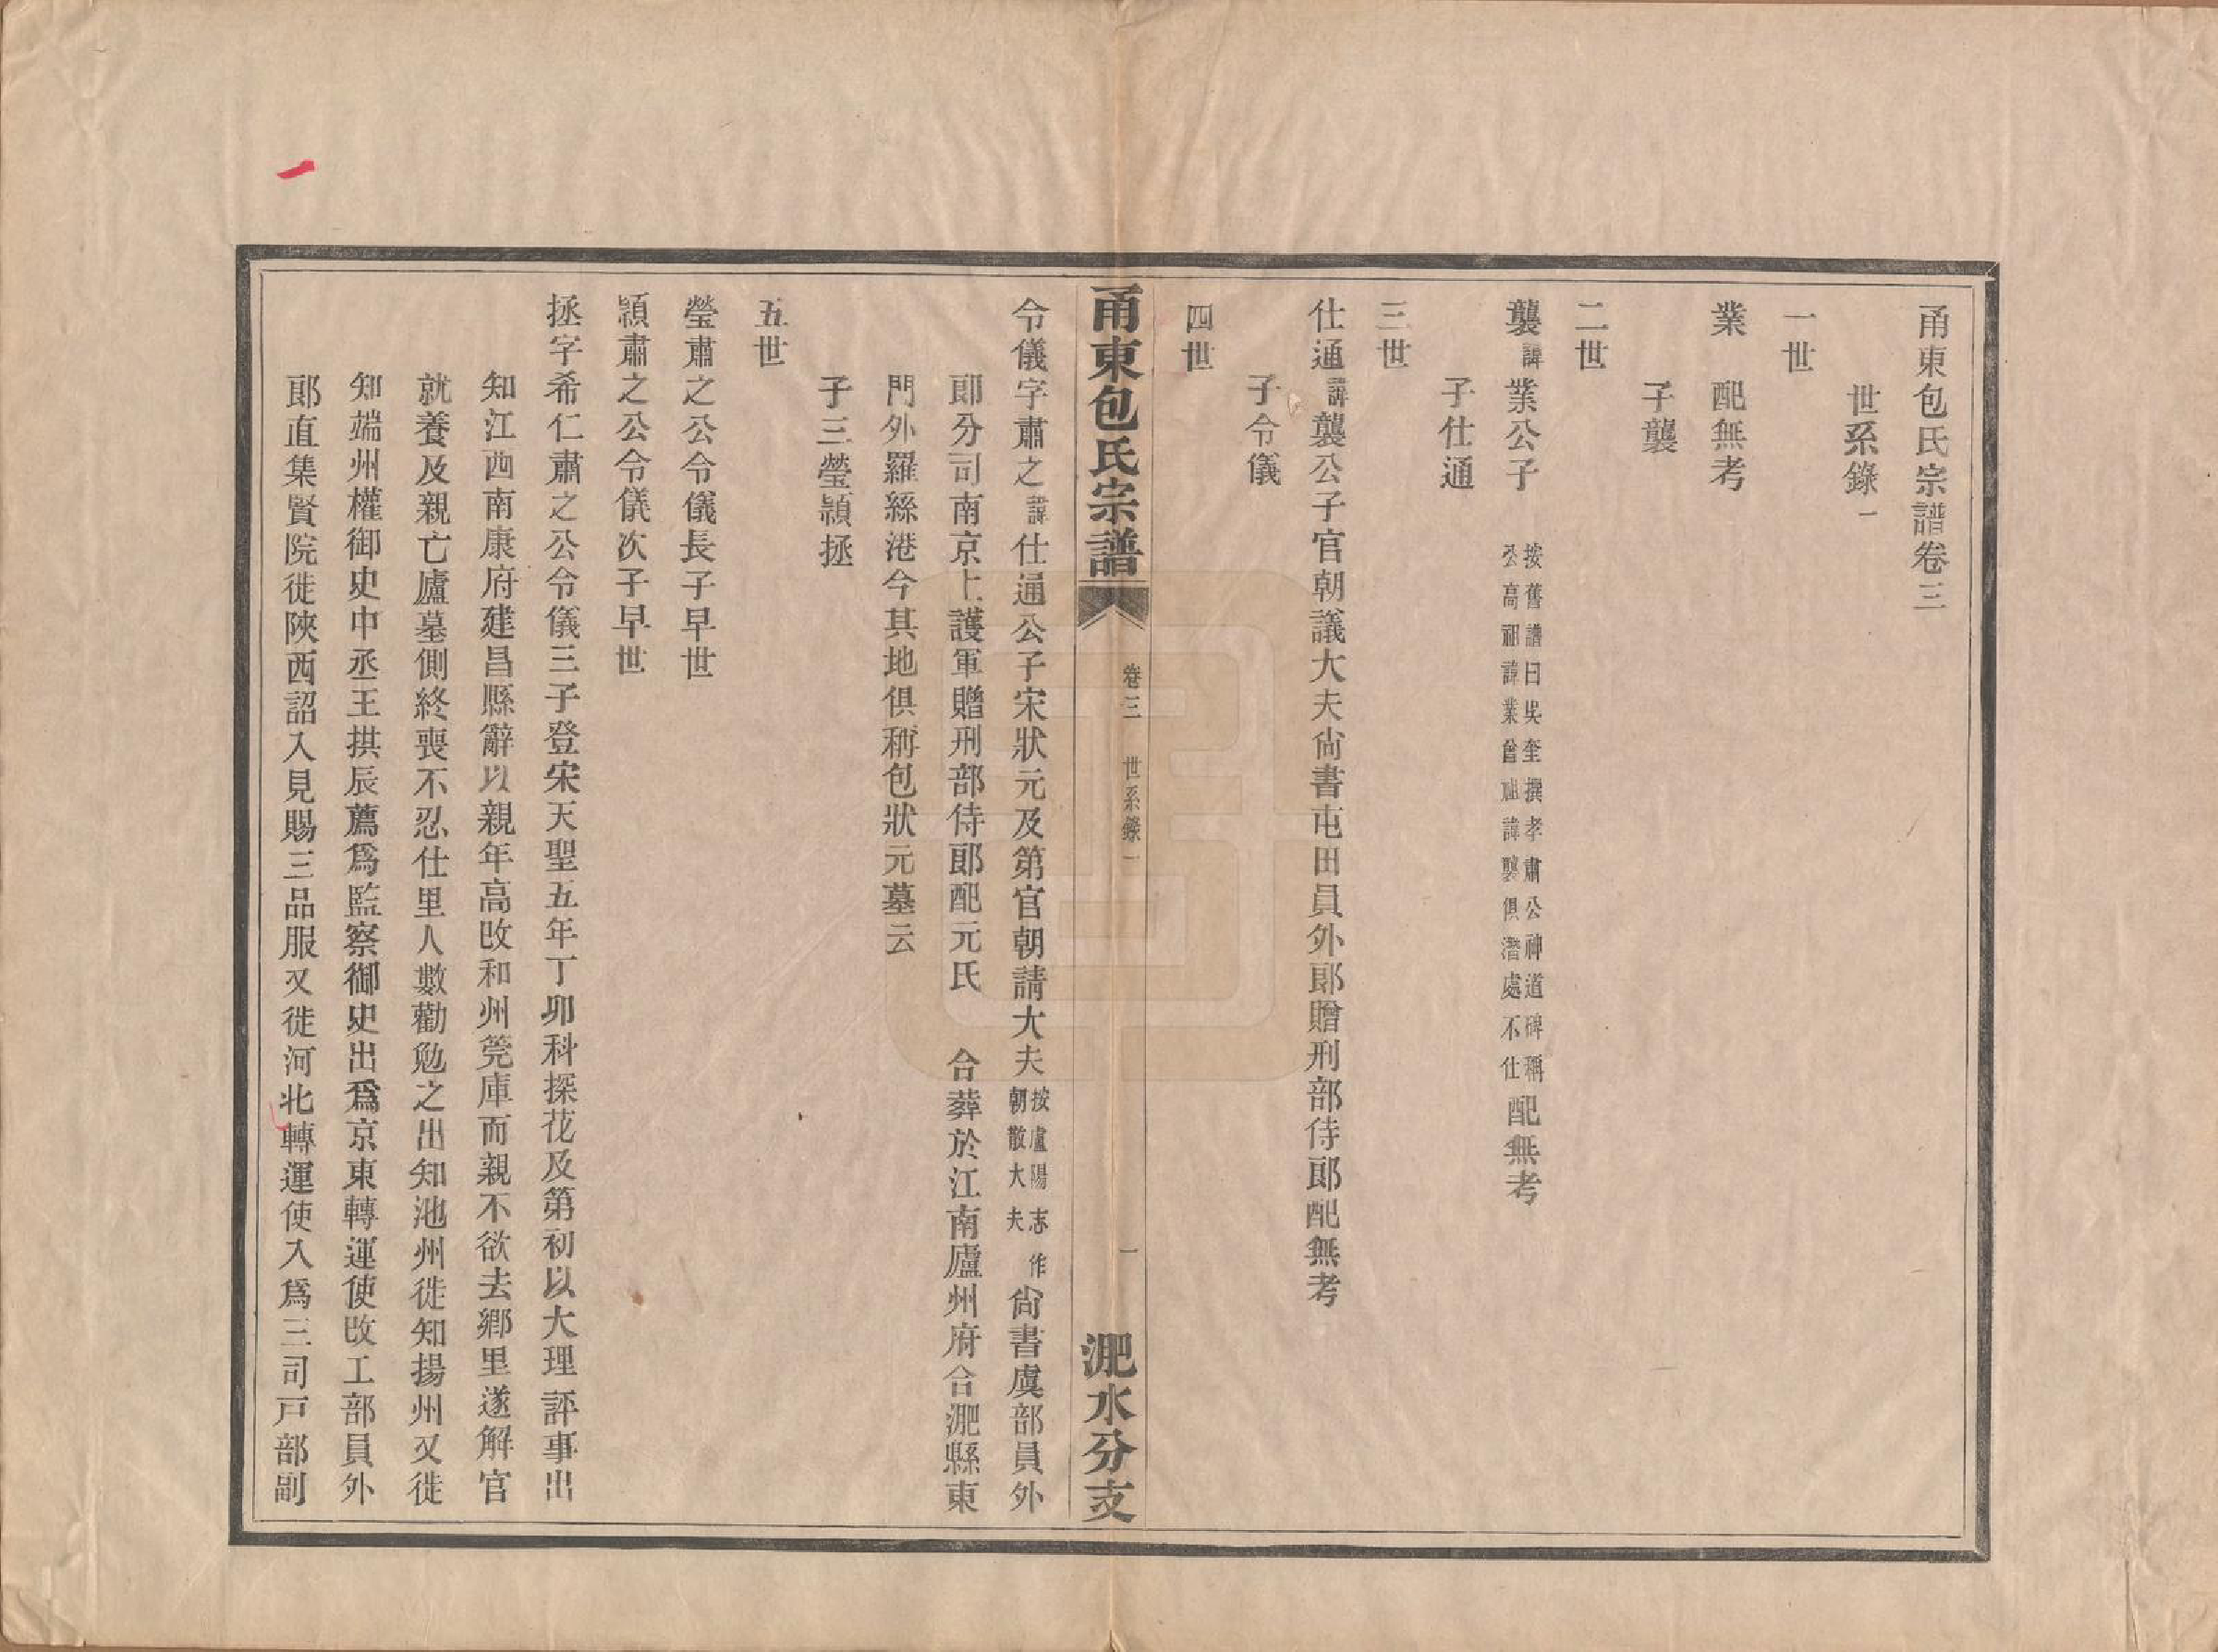 甬東包氏宗譜卷三
世系錄一
一世
業　配無考
子襲
二世
襲諱業公子　按舊譜曰吳奎撰孝肅公神道碑稱公高祖諱業曾祖諱襲俱潛處不仕配無考
子仕通
三世
仕通諱襲公子官朝議大夫尙書屯田員外郎贈刑部侍郎配無考
子令儀
四世
甬東包氏宗譜　卷三　世系錄一　一　淝水分支
令儀字肅之諱仕通公子宋狀元及第官朝請大夫按廬陽志作朝散大夫尙書虞部員外
郎分司南京上護軍贈刑部侍郎配元氏　合葬於江南廬州府合淝縣東
門外羅絲港今其地俱稱包狀元墓云
子三瑩頴拯
五世
瑩肅之公令儀長子早世
頴肅之公令儀次子早世
拯字希仁肅之公令儀三子登宋天聖五年丁卯科探花及第初以大理評事出
知江西南康府建昌縣辭以親年高改和州筦庫而親不欲去鄉里遂解官
就養及親亡廬墓側終喪不忍仕里人數勸勉之出知池州徙知揚州又徙
知端州權御史中丞王拱辰薦爲監察御史出爲京東轉運使改工部員外
郎直集賢院徙陝西詔入見賜三品服又徙河北轉運使入爲三司戶部副